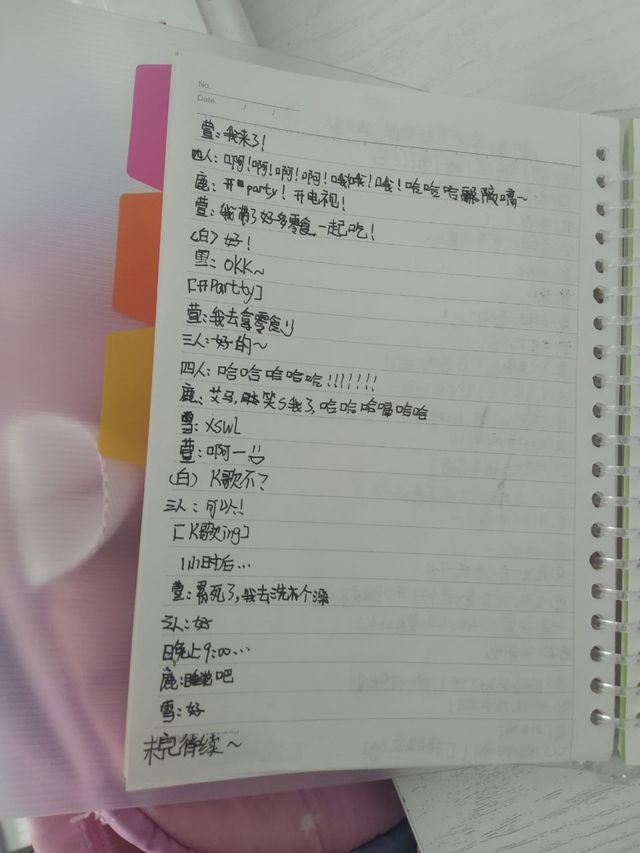 No.
Date. / /
萱：我来了！
四人：啊！啊！啊！啊！哦！哦！哦！哈哈哈
鹿：开party！开电视！
萱：我带了好多零食，一起吃！
（白）好！
雪：OKK~
[开Partty]
萱：我去拿零食
三人：好的~
四人：哈哈哈哈哈！！！！！！！
鹿：艾马，笑s我了，哈哈哈嘟哈哈
雪：XSWL
萱：啊一
（白）K歌不？
三人：可以！
[K歌ing]
1小时后…
萱：累死了，我去洗个澡
三人：好
日晚上9:00…
鹿：睡吧
雪：好
未完待续~